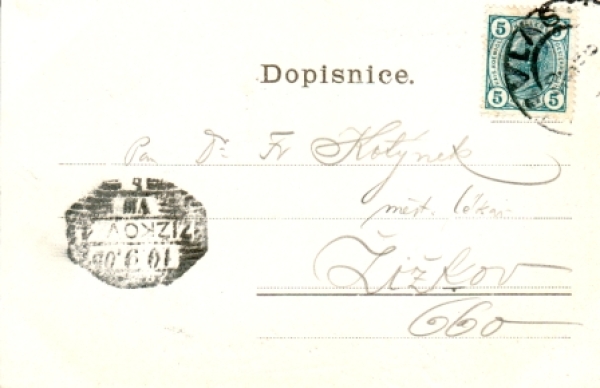 5 5
5 5
VLAŠ
Dopisnice.
Pan Dr Fr Kotýnek
měst. lékař
Žižkov
660
ŽIŽKOV 1
VIII
10.9.05